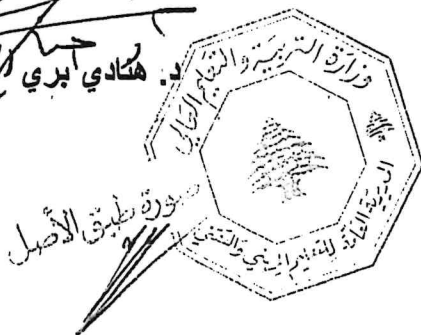 د. هنادي بري
وزارة التربية والتعليم العالي
المديرية العامة للتعليم المهني والتقني
صورة طبق الأصل